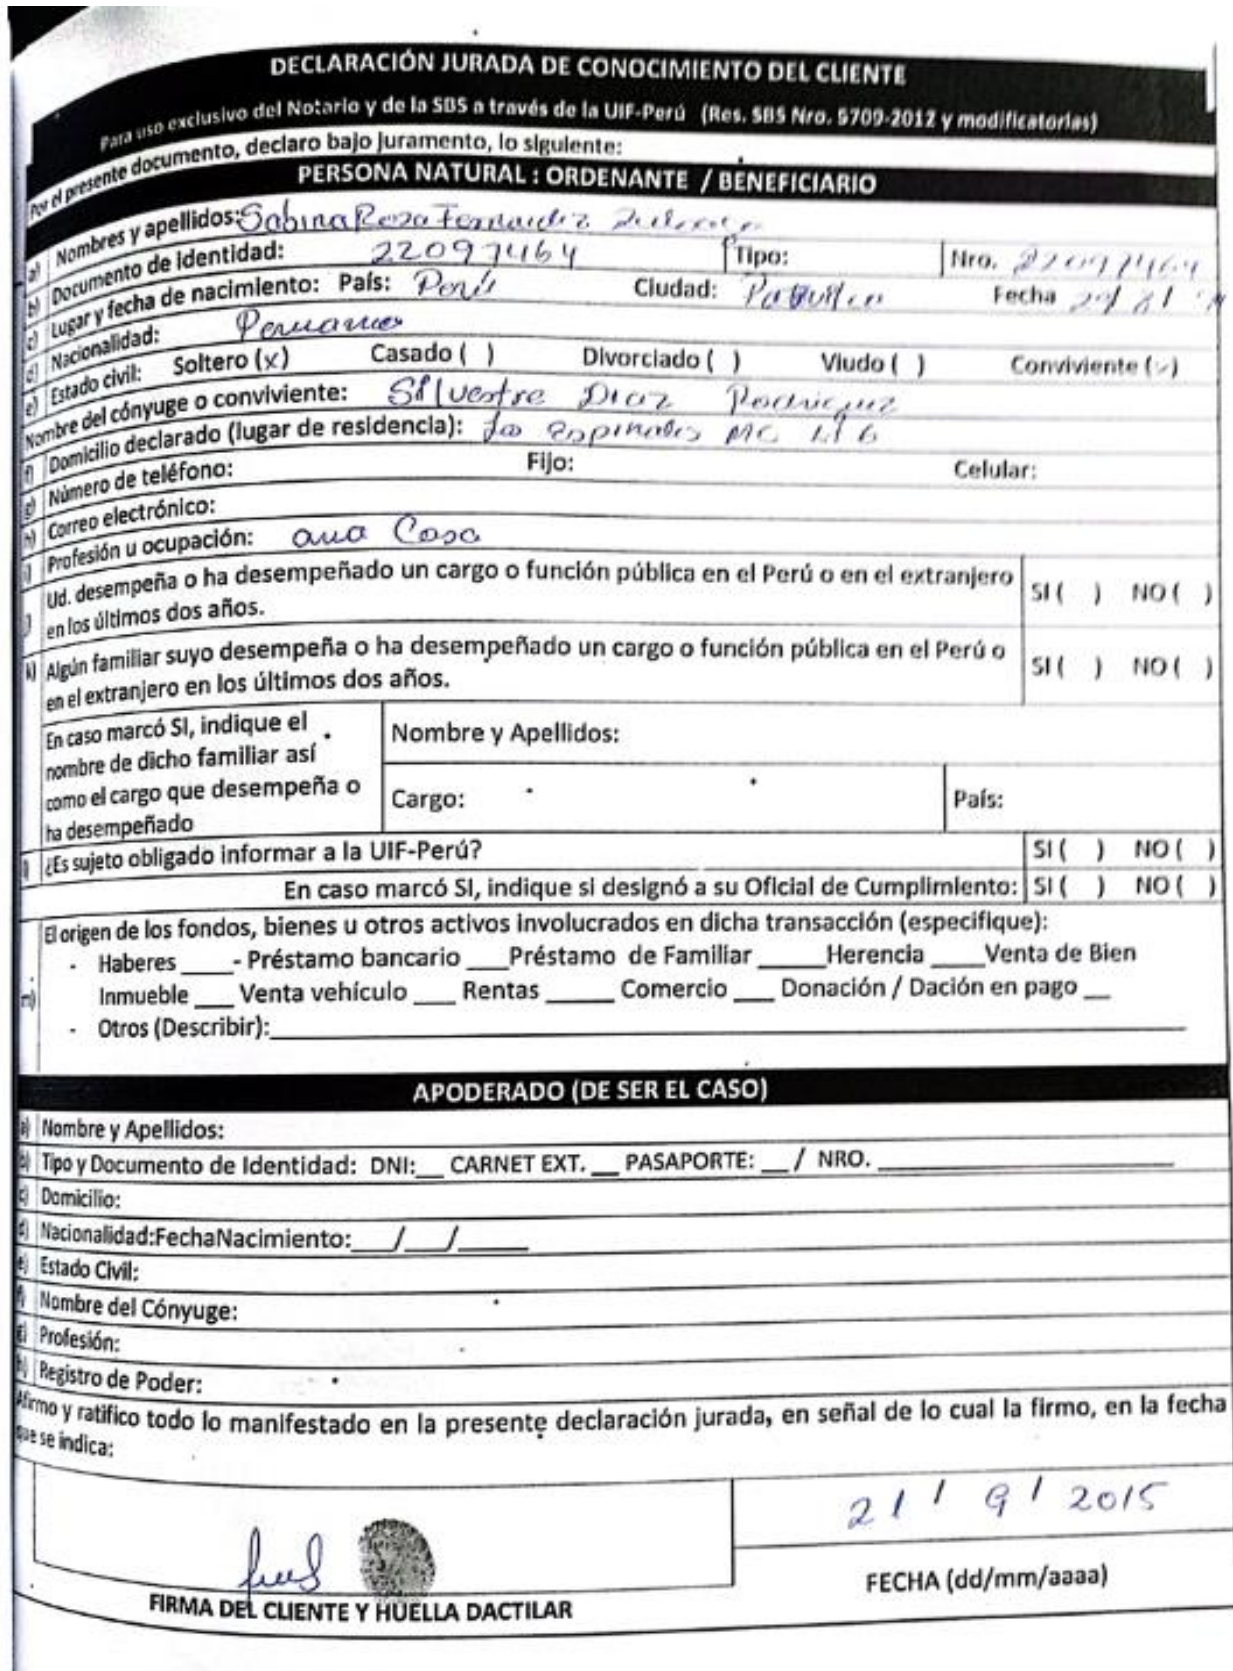 DECLARACIÓN JURADA DE CONOCIMIENTO DEL CLIENTE
Para uso exclusivo del Notario y de la SBS a través de la UIF-Perú (Res. SBS Nro. 5709-2012 y modificatorias)
Por el presente documento, declaro bajo juramento, lo siguiente:
PERSONA NATURAL : ORDENANTE / BENEFICIARIO
a) Nombres y apellidos: Sabina Roza Fernandez
b) Documento de identidad: 22097464 Tipo: Nro. 22097464
c) Lugar y fecha de nacimiento: País: Perú Ciudad: Fecha 29/8/
d) Nacionalidad: Peruana
e) Estado civil: Soltero (x) Casado ( ) Divorciado ( ) Viudo ( ) Conviviente ( )
Nombre del cónyuge o conviviente: Silvestre Diaz Rodriguez
f) Domicilio declarado (lugar de residencia): Los Espinales MC Lt 6
g) Número de teléfono: Fijo: Celular:
h) Correo electrónico:
i) Profesión u ocupación: ama Casa
j) Ud. desempeña o ha desempeñado un cargo o función pública en el Perú o en el extranjero en los últimos dos años. SI ( ) NO ( )
k) Algún familiar suyo desempeña o ha desempeñado un cargo o función pública en el Perú o en el extranjero en los últimos dos años. SI ( ) NO ( )
En caso marcó SI, indique el nombre de dicho familiar así como el cargo que desempeña o ha desempeñado
Nombre y Apellidos:
Cargo: País:
l) ¿Es sujeto obligado informar a la UIF-Perú? SI ( ) NO ( )
En caso marcó SI, indique si designó a su Oficial de Cumplimiento: SI ( ) NO ( )
m) El origen de los fondos, bienes u otros activos involucrados en dicha transacción (especifique):
- Haberes ____- Préstamo bancario ___Préstamo de Familiar _____Herencia ____Venta de Bien
Inmueble ___ Venta vehículo ___ Rentas _____ Comercio ___ Donación / Dación en pago __
- Otros (Describir):
APODERADO (DE SER EL CASO)
a) Nombre y Apellidos:
b) Tipo y Documento de Identidad: DNI:__ CARNET EXT. __ PASAPORTE: __/ NRO.
c) Domicilio:
d) Nacionalidad:FechaNacimiento:___/___/_____
e) Estado Civil:
f) Nombre del Cónyuge:
g) Profesión:
h) Registro de Poder:
Afirmo y ratifico todo lo manifestado en la presente declaración jurada, en señal de lo cual la firmo, en la fecha
que se indica:
21 / 9 / 2015
FECHA (dd/mm/aaaa)
FIRMA DEL CLIENTE Y HUELLA DACTILAR